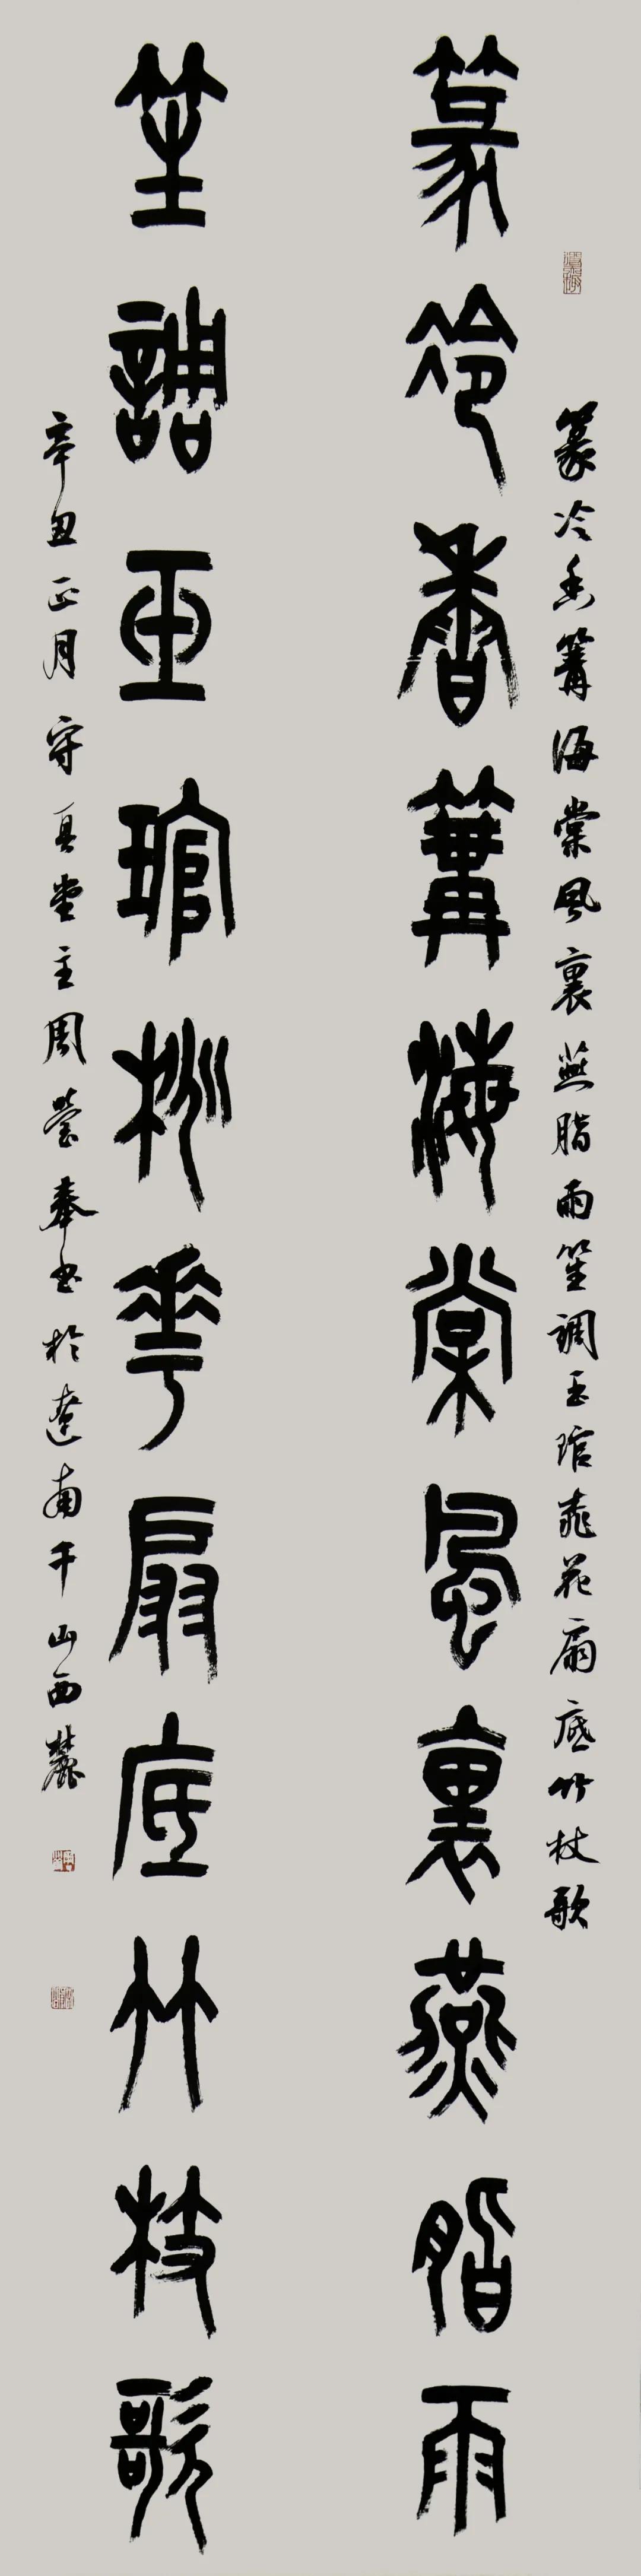 篆冷香篝海棠風裏燕脂雨
笙調玉琯桃花扇底竹枝歌
篆冷香篝海棠風裏燕脂雨笙調玉琯桃花扇底竹枝歌
辛丑正月守真堂主周瑩奉書於遼南千山西麓